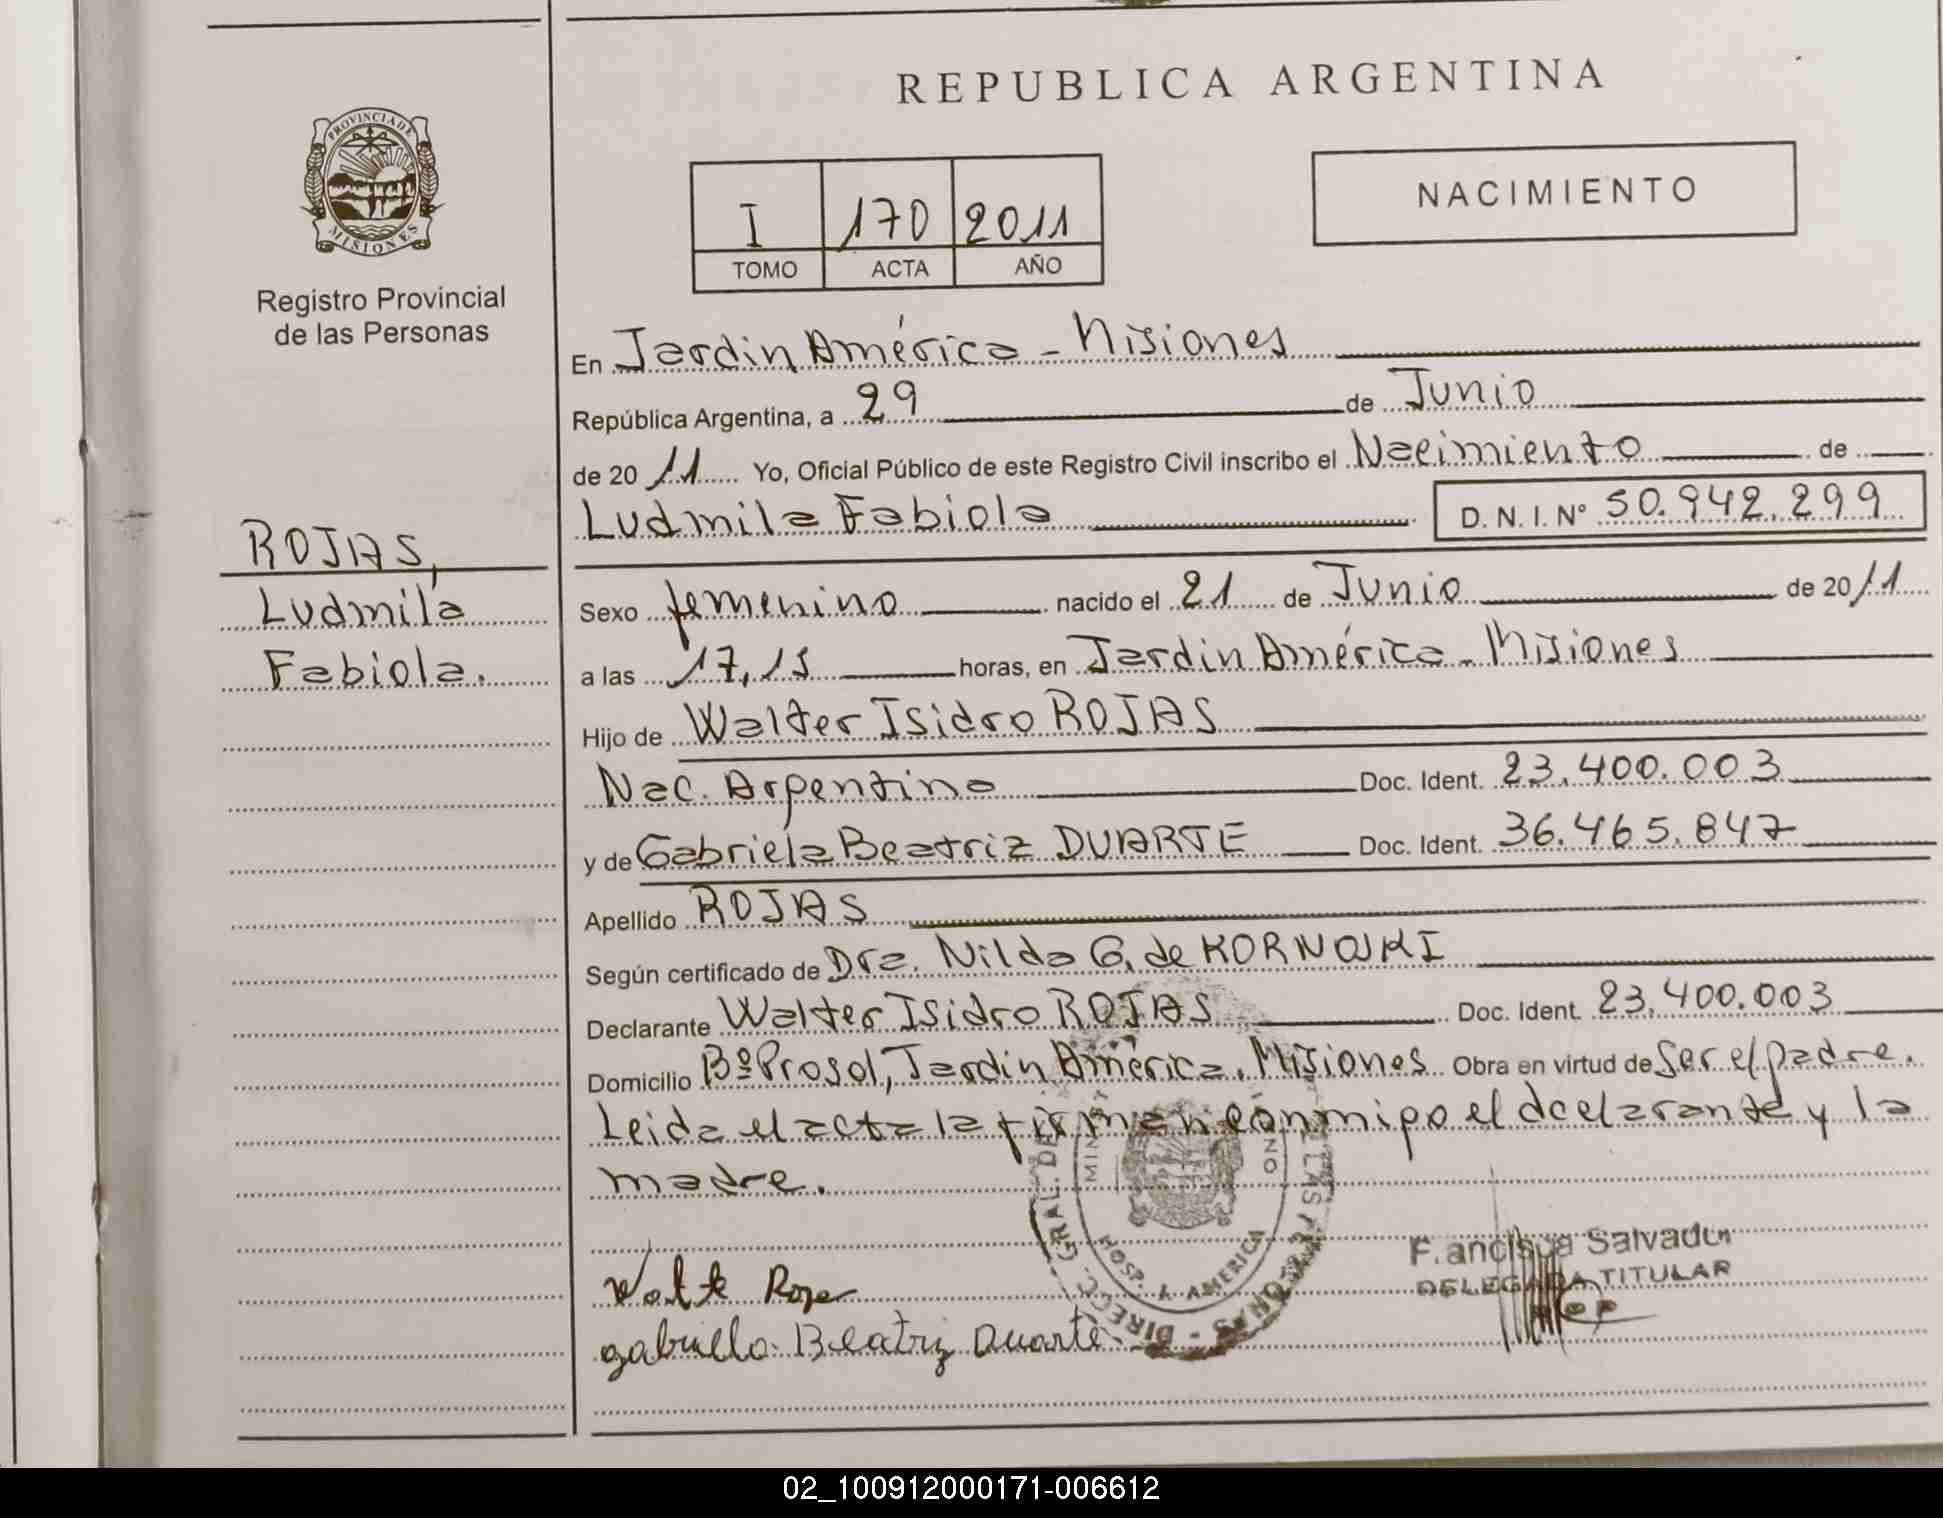 REPUBLICA ARGENTINA
PROVINCIA DE
MISIONES
Registro Provincial
de las Personas
I 170 2011
TOMO ACTA AÑO
NACIMIENTO
En Jardin América - Misiones
República Argentina, a 29 de Junio
de 2011 Yo, Oficial Público de este Registro Civil inscribo el Nacimiento de
Ludmila Fabiola D.N.I. Nº 50.942.299
ROJAS,
Ludmila
Fabiola.
Sexo femenino nacido el 21 de Junio de 2011
a las 17,15 horas, en Jardin América - Misiones
Hijo de Walter Isidro ROJAS
Nac. Argentina Doc. Ident. 23.400.003
y de Gabriela Beatriz DUARTE Doc. Ident. 36.465.847
Apellido ROJAS
Según certificado de Dra. Nilda G. de
Declarante Walter Isidro ROJAS Doc. Ident. 23.400.003
Domicilio Bº Prosol, Jardin América, Misiones Obra en virtud de Ser el padre.
Leida el acta la firman conmigo el declarante y la
madre.
DIRECC. GRAL. DE LAS PERSONAS
AMERICA
Salvador
DELEGADA TITULAR
gabriella Beatriz Duarte
02_100912000171-006612